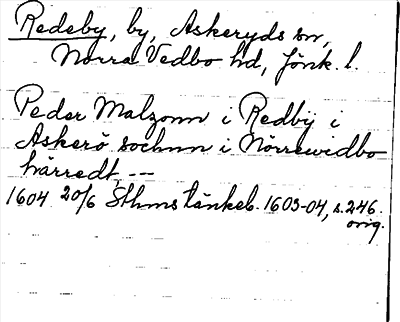 Redeby, by, Askeryds sn,
Norra Vedbo hd, Jönk. l.
Peder Malzonn i Redbij i
Askerö sochnn i Nörrewidbo
härredt, --
1604 20/6 Sthms tänkeb. 1603-04, s. 246.
orig.